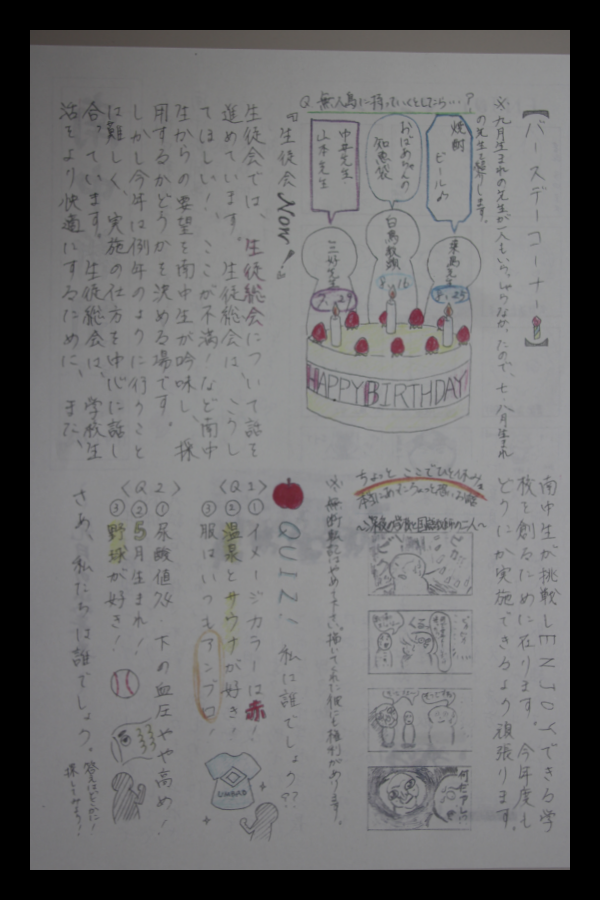 【バースデーコーナー】
※九月生まれの先生が一人もいらっしゃらなかったので、七・八月生まれ
の先生を紹介します。
Q 無人島に持っていくとしたらいい?
焼酎
ビール
おばあちゃんの
知恵袋
中井先生
山本先生
栗島先生
8.25
白鳥教頭
8.16
三好先生
7.27
HAPPY BIRTHDAY
『生徒会Now!』
生徒会では、生徒総会について話を
進めています。生徒総会は、こうし
てほしい!ここが不満!など南中
生からの要望を南中生が吟味し、採
用するかどうかを決める場です。
しかし今年は例年のように行うこと
は難しく、実施の仕方を中心に話し
合っています。生徒総会は、学校生
活をより快適にするために、また、
南中生が挑戦しENJOYできる学
校を創るために在ります。今年度も
どうにか実施できるよう頑張ります。
ちょっとここでひと休み。
本当にあったちょっと怖い話
※無断転載はやめて下さい。描いてくれた彼にも権利があります。
QUIZ!私は誰でしょう??
〈Q1〉
①イメージカラーは赤!
②温泉とサウナが好き!
③服はいつもアンブロ!
UMBRO
〈Q2〉
①尿酸値7.8、下の血圧やや高め!
②5月生まれ!
③野球が好き!
さあ、私たちは誰でしょう。
答えはどこかに!
探してみよう!